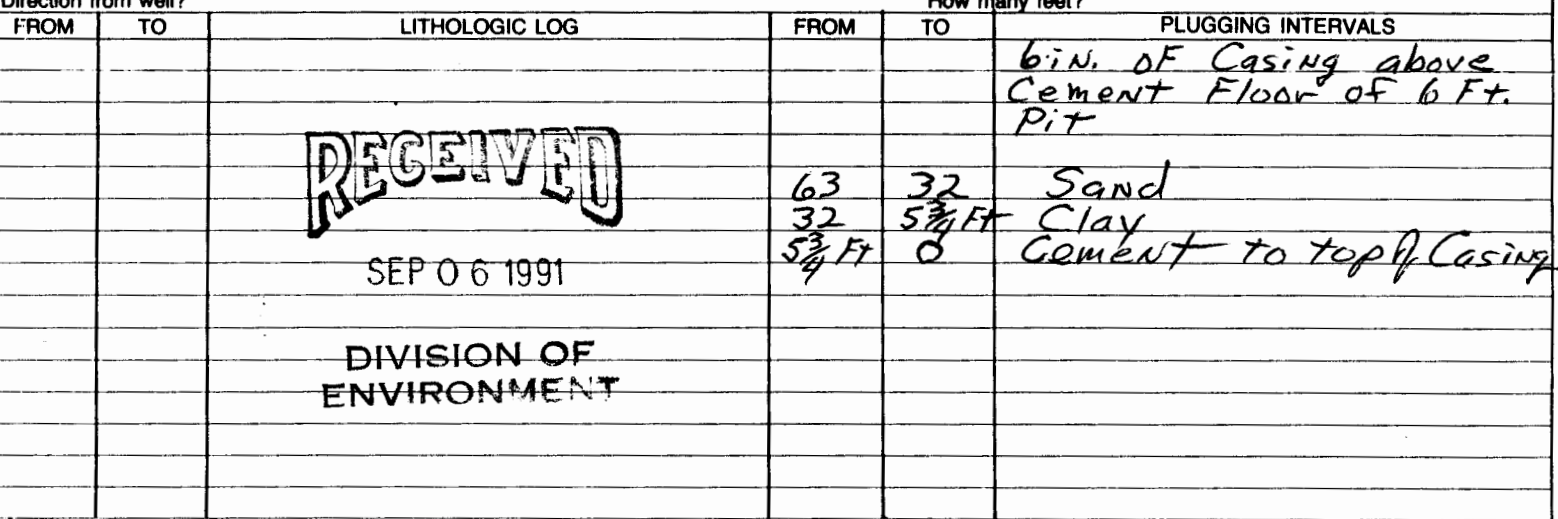 Direction from well? How many feet?
FROM TO LITHOLOGIC LOG FROM TO PLUGGING INTERVALS
6 iN. OF Casing above
Cement Floor of 6 Ft.
Pit
RECEIVED
63 32 Sand
32 5 3/4 Ft Clay
5 3/4 Ft 0 Cement to top of Casing
SEP 06 1991
DIVISION OF
ENVIRONMENT